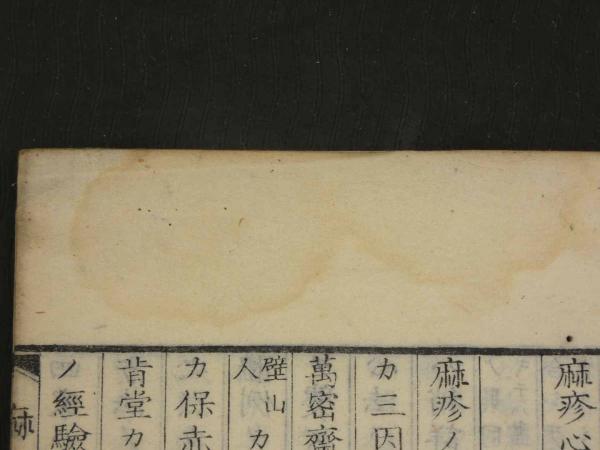 麻疹心
麻疹ノ
カ三因
萬密齋
璧山人カ
カ保赤
肯堂カ
ノ經驗